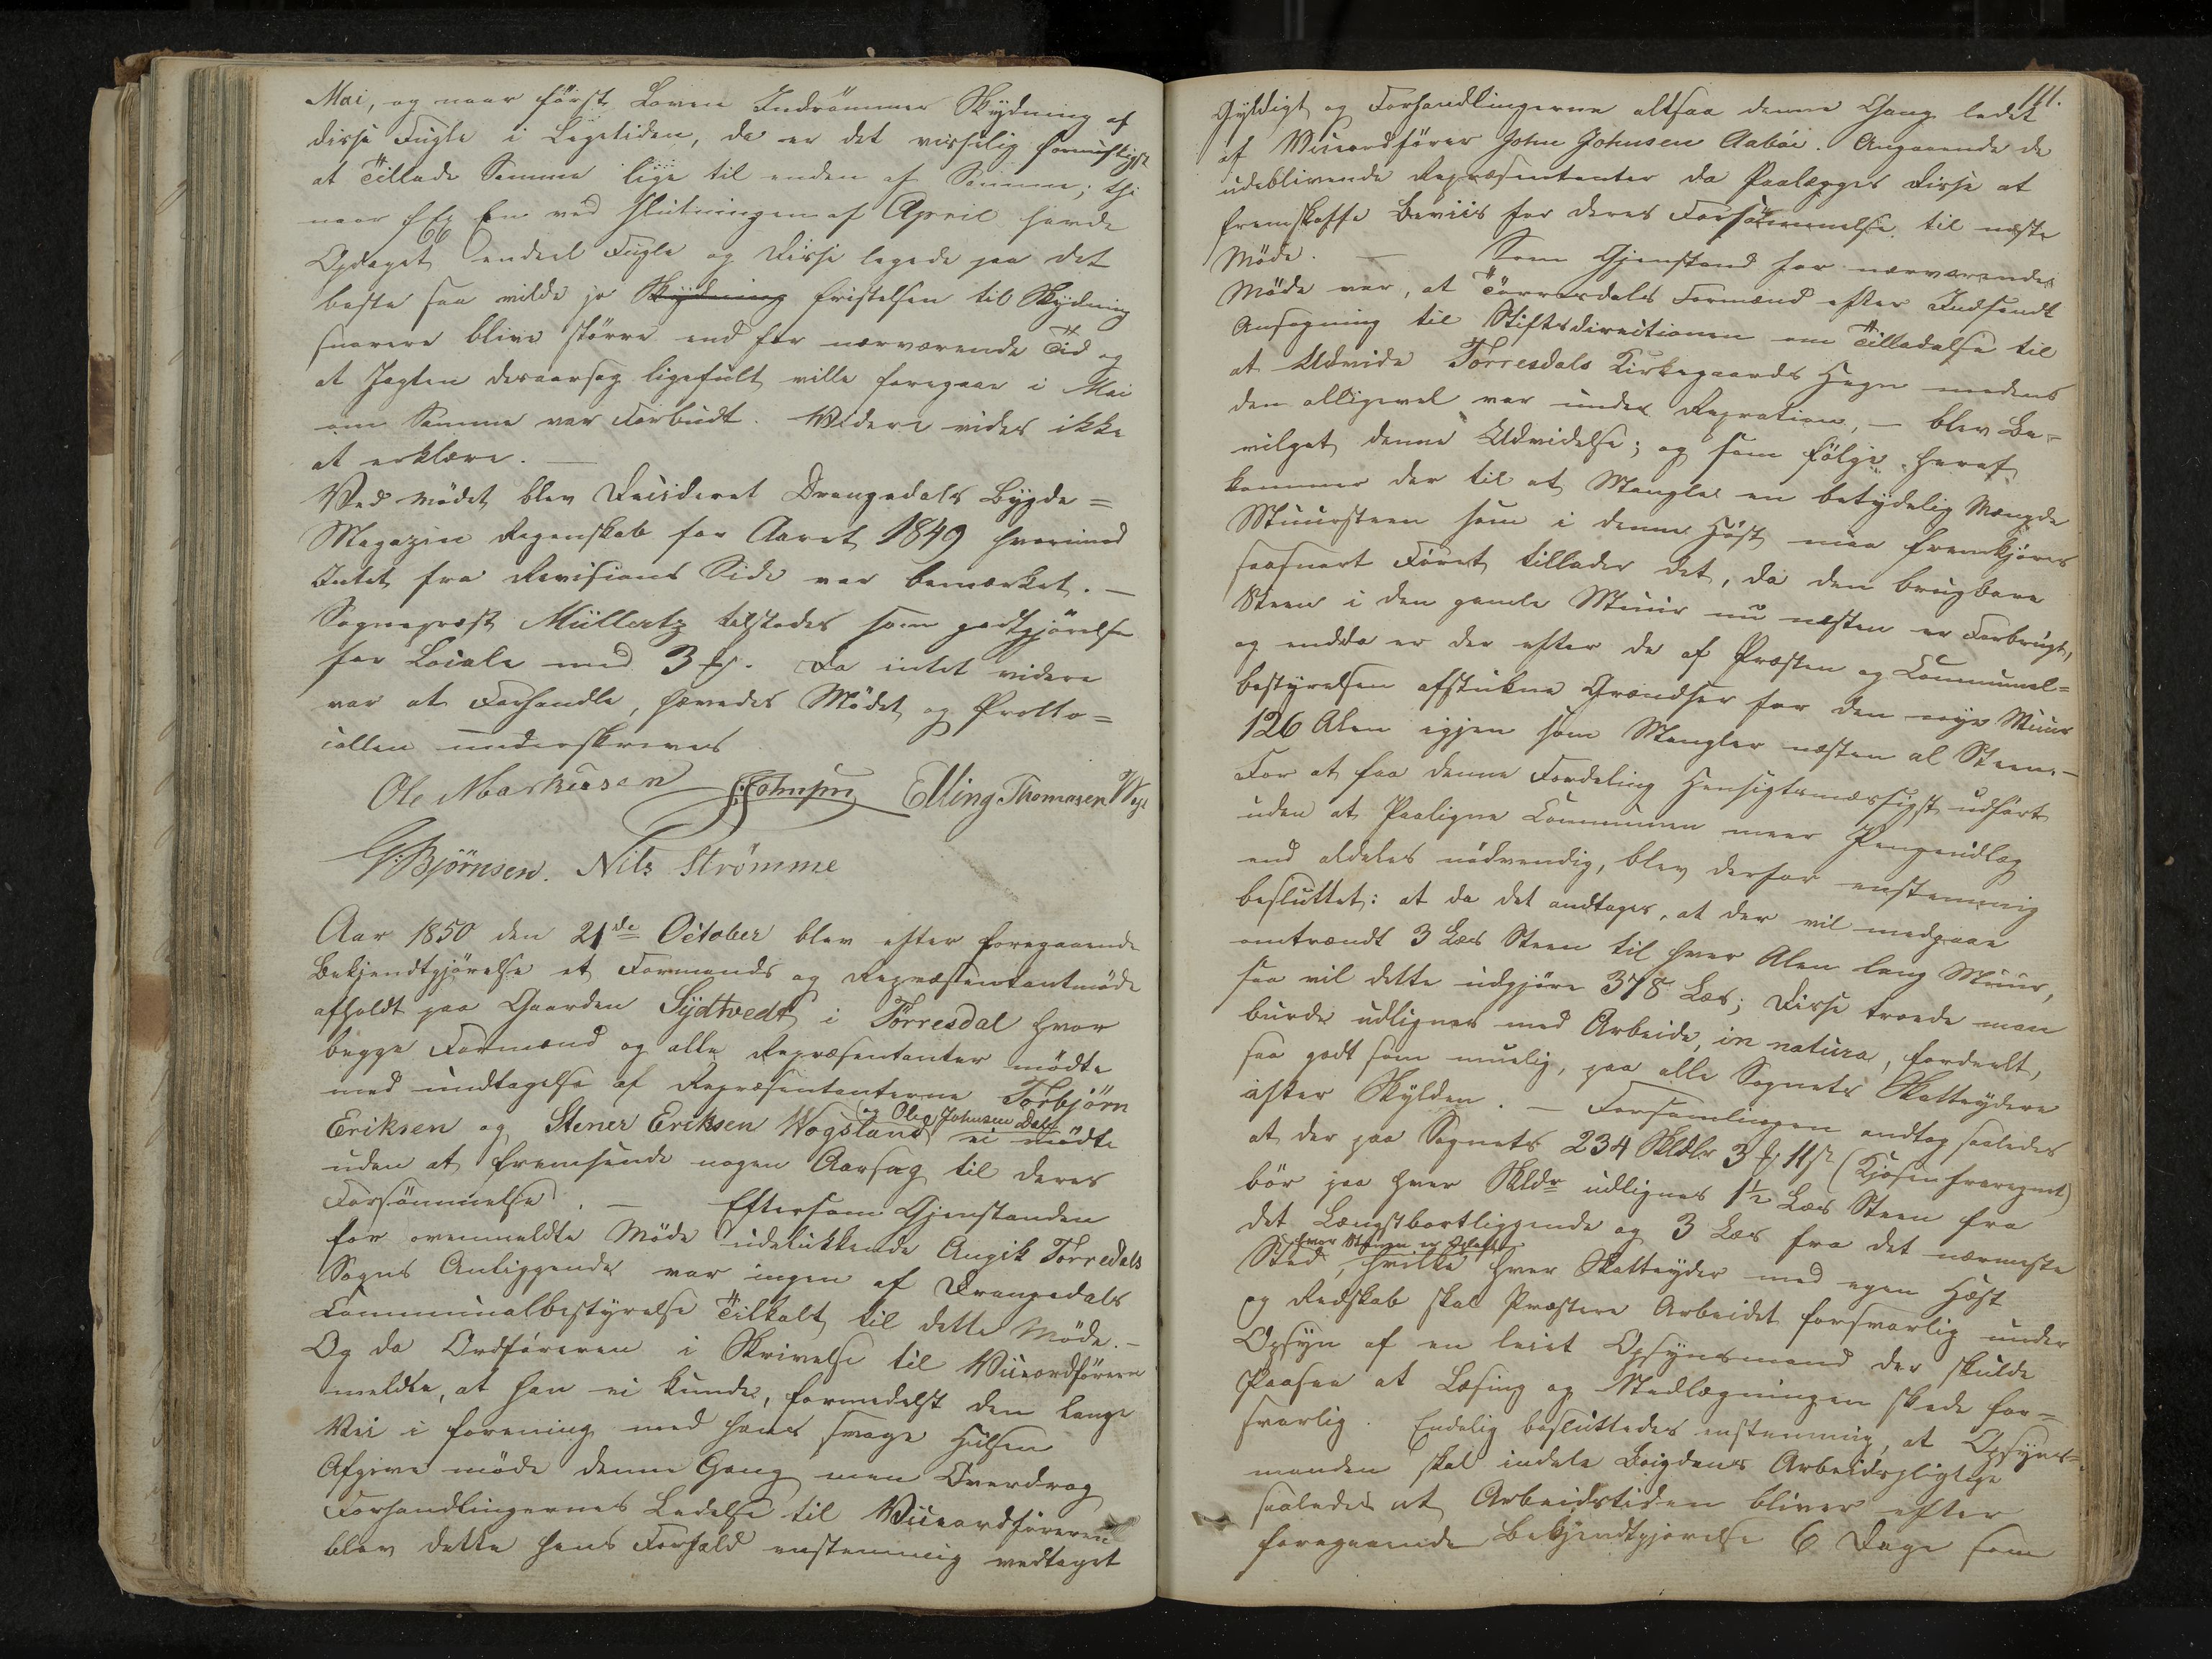 Mai, og naar først Loven Indrømmer Skydning af
disse Fugle i Legetiden, da er det visselig fornuftigst
at Tillade Samme lige til enden af Samme; thi
naar f Ex En ved Slutningen af April havde
Opdaget endeel Fugle og Disse legede paa det
beste saa vilde jo Skydning fristelsen til Skydning
snarere blive større end for nærværende Tid og
at Jagten desaarsag ligefuldt ville foregaae i Mai
om Samme var Forbudt. Videre vides ikke
at erklære. —
Ved mødet blev Decideret Drangedals Bygde=
Magazin Regenskab for Aaret 1849 hvorimod
Intet fra Revisions Side var bemærket. —
Sogneprest Müllertz tilstodes som godtgjørelse
for Locale med 3 ƒ. Da intet videre
var at Forhandle, hævedes Mødet og Protto=
collen underskreves
Ole Markussen J Johnsen Elling Thomasen
G: Bjørnsen. Nils Strømme
Aar 1850 den 21de October blev efter foregaaende
Bekjendtgjørelse et Formands og Repræsentantmøde
afholdt paa Gaarden Sydtvedt i Tørresdal hvor
begge Formænd og alle Repræsentanter mødte
med undtagelse af Repræsentanterne Torbjørn
og Ole Johnsen Dale
Eriksen og Stener Eriksen Wogsland ei mødte
uden at fremsende nogen Aarsag til deres
Forsømmelse. — Eftersom Gjenstanden
for ovenmeldte Møde udelukkende Angik Tørredals
Sogns Anliggende var ingen af Drangedals
Communalbestyrelse Tilkalt til dette Møde. —
Og da Ordføreren i Skrivelse til Viceordføreren
meldte, at han ei kunde, formedelst den lange
Vei i forening med hans svage Hülsen
Afgive møde denne Gang men Overdrog
Forhandlingernes Ledelse til Viceordføreren
blev dette hans Forfald enstemmig vedtaget
111.
Gyldigt og Forhandlingerne altsaa denne Gang ledet
af Viceordfører John Johnsen Aabøe. Angaaende de
udeblivende Repræsentanter da Paalægges Disse at
fremskaffe Beviis for deres Forsømmelse til næste
Møde. — Som Gjenstand for nærværende
Møde var, at Tørresdals Formænd efter Indsendt
Ansøgning til Stiftsdirectionen om Tilladelse til
at Udvide Tørresdals Kirkegaards Hegn medens
den alligevel var under Repration, — blev Be=
vilget denne Udvidelse; og som følge heraf
kommer der til at Mangle en betydelig Mængde
Muursteen som i denne Høst maa fremkjøres
saasnart Føret tillader det, da den brugbare
Steen i den gamle Muur nu næsten er Forbrugt,
og endda er der efter de af Præsten og Communal=
bestyrelsen afstukne Grændser for den nye Muur
126 Alen igjen som Mangler næsten al Steen. —
For at faa denne Fordeling Hensigtsmæssigst udført
uden at Paaligne Communen meer Pengeudlæg
end aldeles nødvendig, blev derfor enstemmig
besluttet: at da det andtages, at der vil medgaae
omtrændt 3 Læs Steen til hver Alen lang Muur,
saa vil dette udgjøre 378 Læs; Disse troede man
burde udlignes med Arbeide, in natura, fordeelt,
saa godt som muelig, paa alle Sognets Skatteydere
efter Skylden. — Forsamlingen andtog saaledes
at der paa Sognets 234 Skldlr 3 ƒ 11 s (Kjosen fraregnet)
bør paa hver Skldr udlignes 1½ Læs Steen fra
det Længstbortliggende og 3 Læs fra det nærmeste
hvor Steen er
Sted, hvilke hver Skatteyder med egen Hæst
og Redskab skal Præstere Arbeidet forsvarlig under
Opsyn af en leiet Opsynsmand der skulde
Paasee at Læsing og Nedlægningen skede for=
svarlig. Endelig besluttedes enstemmig, at Opsyns=
manden skal indele Boigdens Arbeidspligtige
saaledes at Arbeidstiden bliver efter
foregaaende Bekjendtgjørelse 6 Dage som